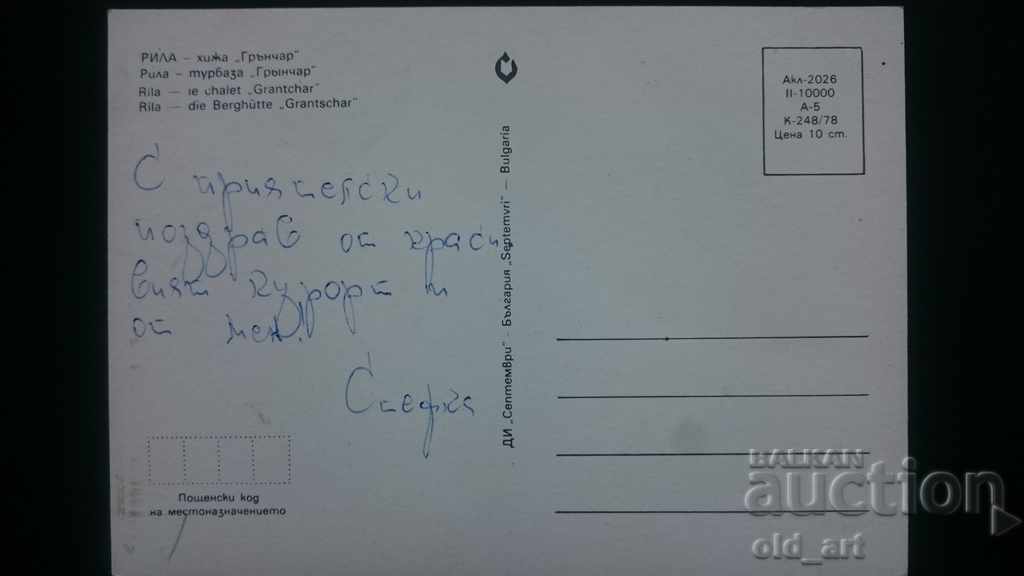 РИЛА – хижа „Грънчар"
Рила – турбаза „Грынчар"
Rila — le chalet „Grantchar"
Rila — die Berghütte „Grantschar"
С приятелски
поздрав от краси
вият курорт и
от мен!
Стефка
Пощенски код
на местоназначението
ДИ „Септември" – България „Septemvri" – Bulgaria
Акл-2026
II-10000
А-5
К-248/78
Цена 10 ст.
BALKAN
auction
old_art